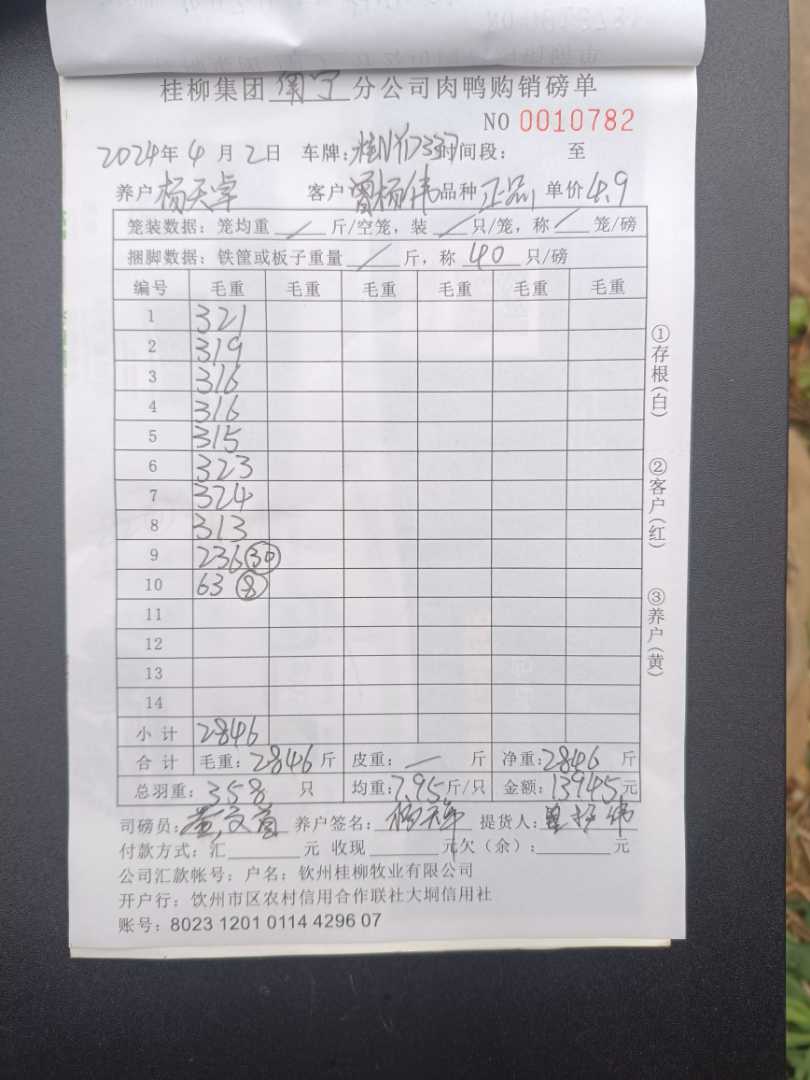 桂柳集团 南宁 分公司肉鸭购销磅单
NO 0010782
2024年 4 月 2 日 车牌:桂NYD337时间段: 至
养户 杨天卓 客户 曾杨伟 品种 正品 单价 4.9
笼装数据: 笼均重 / 斤/空笼, 装 / 只/笼, 称 / 笼/磅
捆脚数据: 铁筐或板子重量 / 斤, 称 40 只/磅
编号 毛重 毛重 毛重 毛重 毛重 毛重
1 321
2 319
3 316
4 316
5 315
6 323
7 324
8 313
9 236 30
10 63 8
11
12
13
14
小计 2846
合计 毛重: 2846 斤 皮重: — 斤 净重: 2846 斤
总羽重: 358 只 均重: 7.95 斤/只 金额: 13945 元
司磅员: 养户签名: 杨天卓 提货人: 曾杨伟
付款方式: 汇 元 收现 元欠(余): 元
公司汇款帐号: 户名: 钦州桂柳牧业有限公司
开户行: 饮州市区农村信用合作联社大垌信用社
账号: 8023 1201 0114 4296 07
①存根(白)
②客户(红)
③养户(黄)